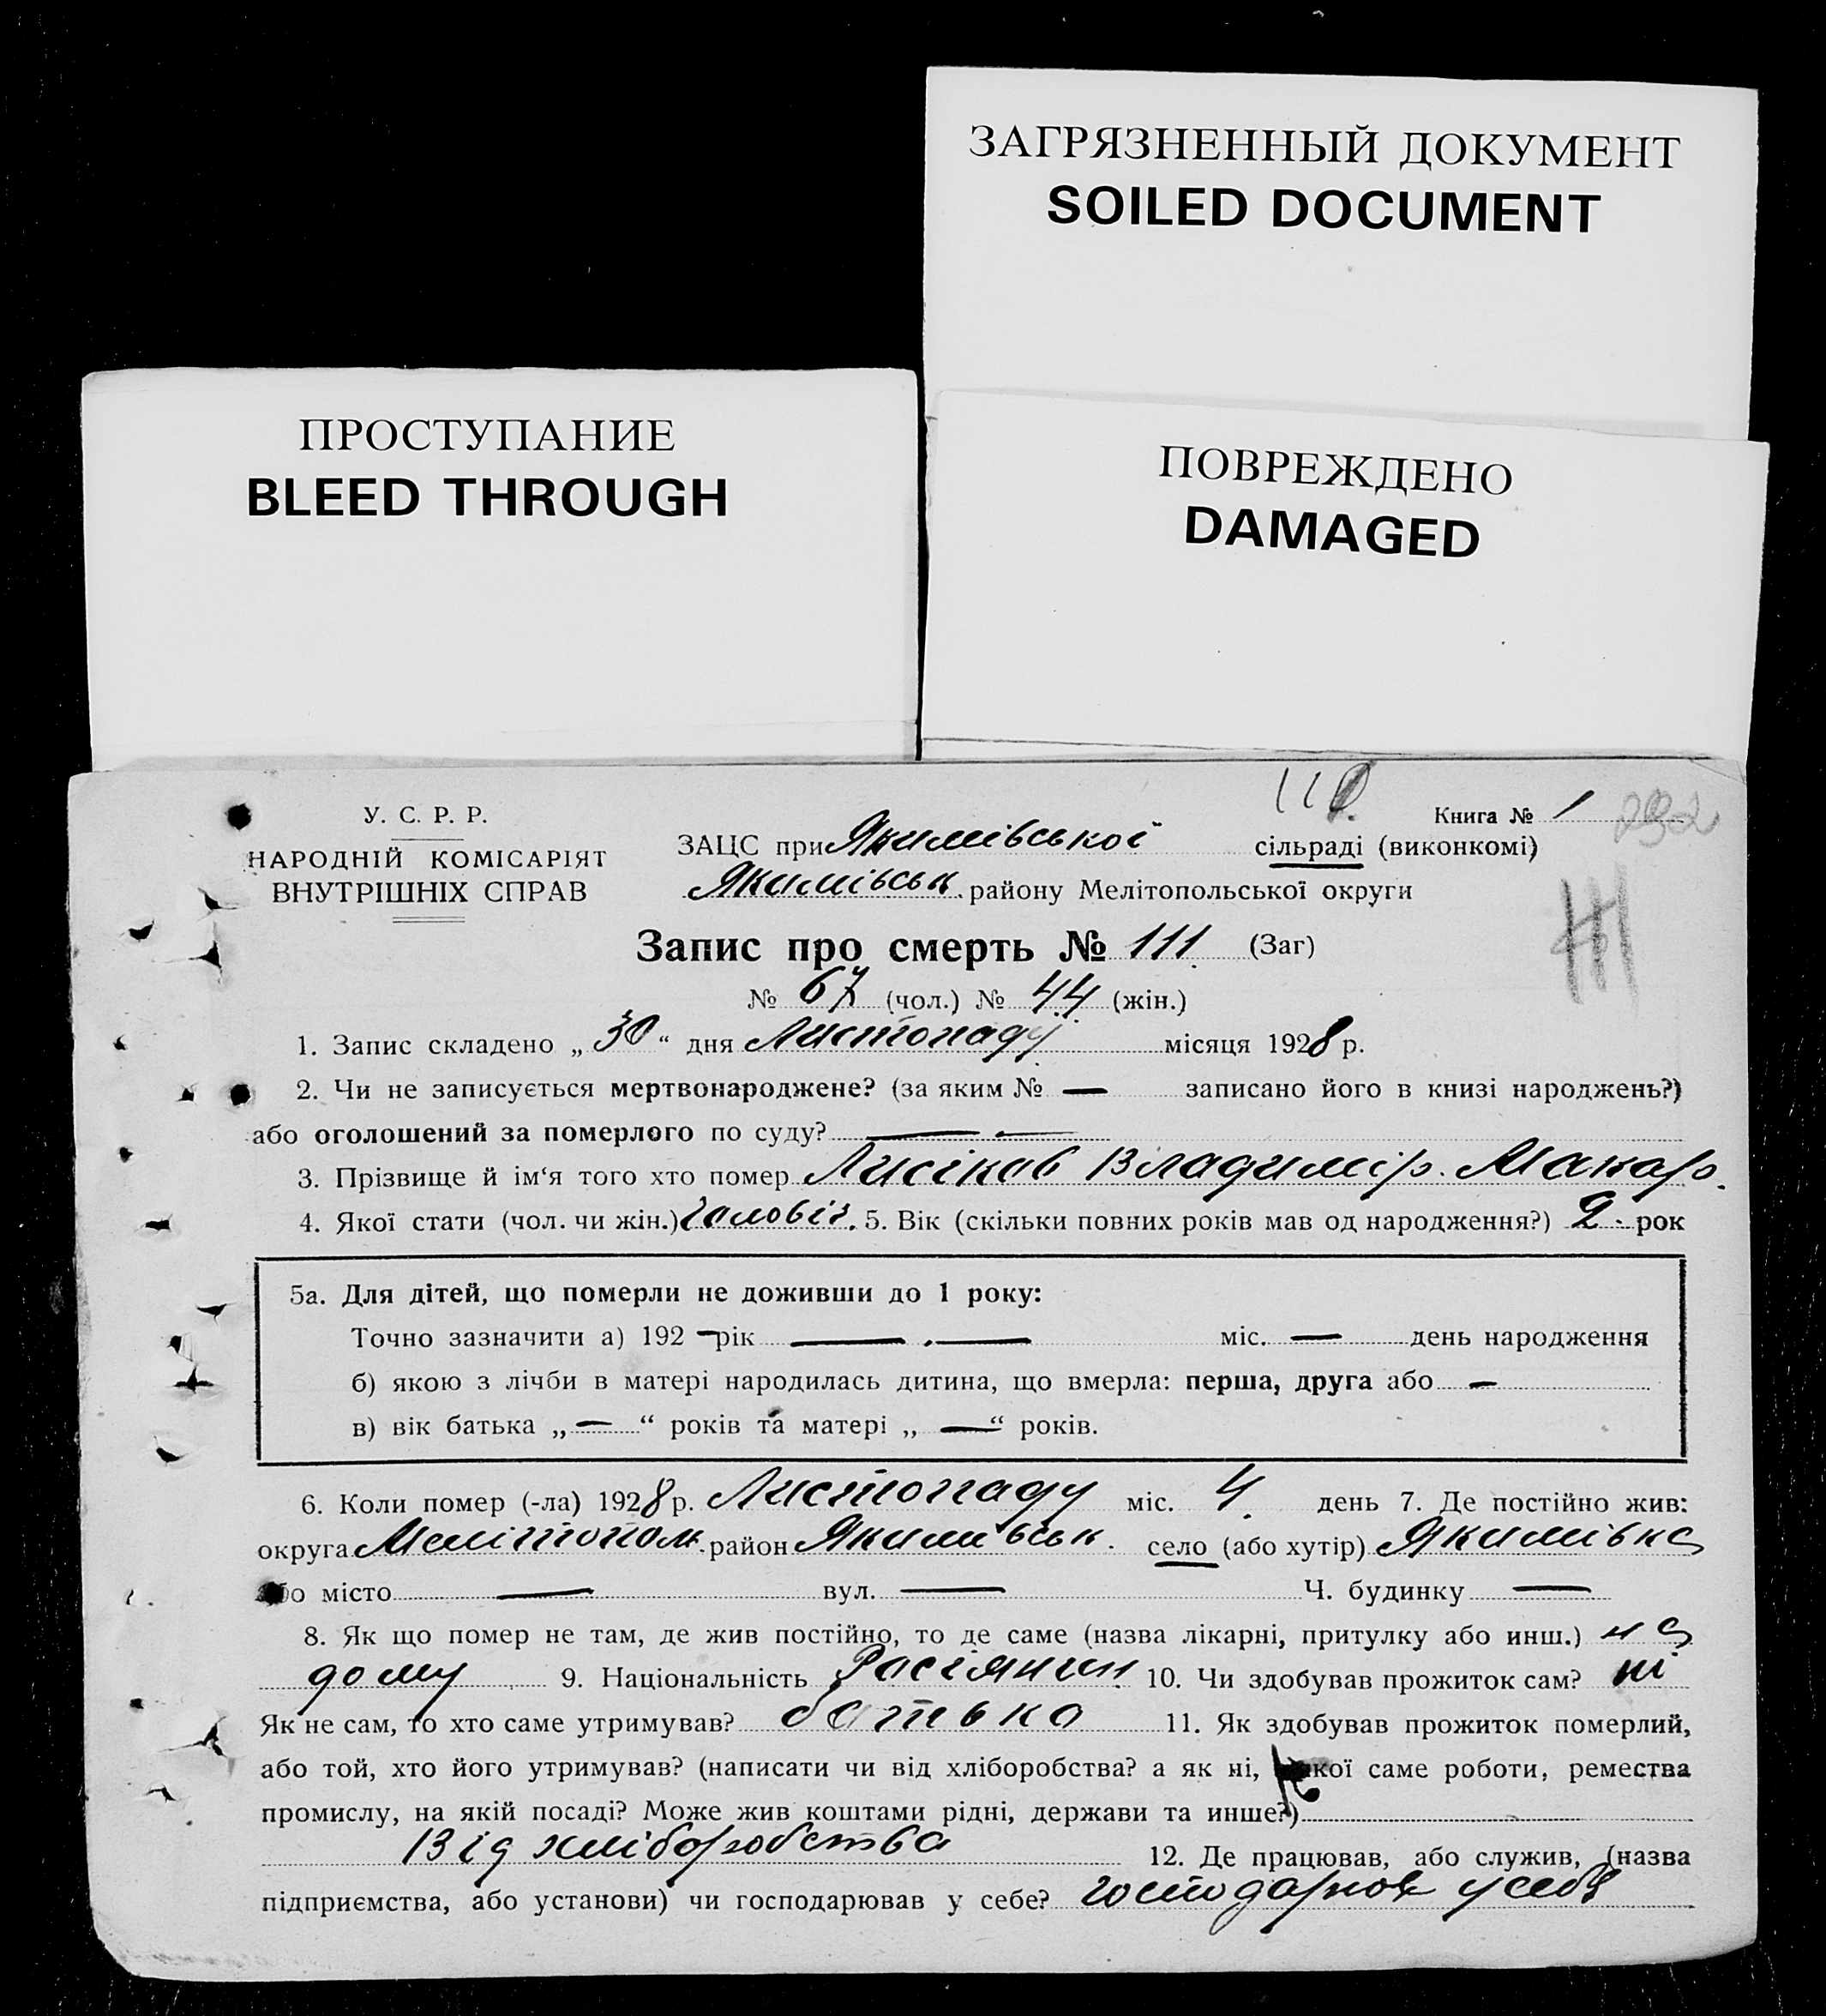 ЗАГРЯЗНЕННЫЙ ДОКУМЕНТ
SOILED DOCUMENT
ПРОСТУПАНИЕ
BLEED THROUGH
ПОВРЕЖДЕНО
DAMAGED
У. С. Р. Р.
НАРОДНІЙ КОМІСАРІЯТ
ВНУТРІШНІХ СПРАВ
Книга № 1
ЗАЦС при Якимівської сільраді (виконкомі)
Якимівськ. району Мелітопольської округи
Запис про смерть № 111 (Заг)
№ 67 (чол.) № 44 (жін.)
1. Запис складено „ 30 “ дня Листопаду місяця 1928 р.
2. Чи не записується мертвонароджене? (за яким № — записано його в книзі народжень?)
або оголошений за померлого по суду? — —
3. Прізвище й ім‘я того хто помер Лисіков Владимір. Макар.
4. Якої стати (чол. чи жін.) чоловіч. 5. Вік (скільки повних років мав од народження?) 2 рок
5а. Для дітей, що померли не доживши до 1 року:
Точно зазначити а) 192 — рік — . — міс. — день народження
б) якою з лічби в матері народилась дитина, що вмерла: перша, друга або —
в) вік батька „ — “ років та матері „ — “ років.
6. Коли помер (-ла) 1928 р. Листопаду міс. 4. день 7. Де постійно жив:
округа Мелітополь. район Якимівськ. село (або хутір) Якимівка
або місто — вул. — Ч. будинку —
8. Як що помер не там, де жив постійно, то де саме (назва лікарні, притулку або инш.) на
дому 9. Національність Расіянин 10. Чи здобував прожиток сам? ні
Як не сам, то хто саме утримував? батько 11. Як здобував прожиток померлий,
або той, хто його утримував? (написати чи від хліборобства? а як ні, якої саме роботи, ремества
промислу, на якій посаді? Може жив коштами рідні, держави та инше?)
Від хліборобства 12. Де працював, або служив, (назва
підприємства, або установи) чи господарював у себе? господарював у себе